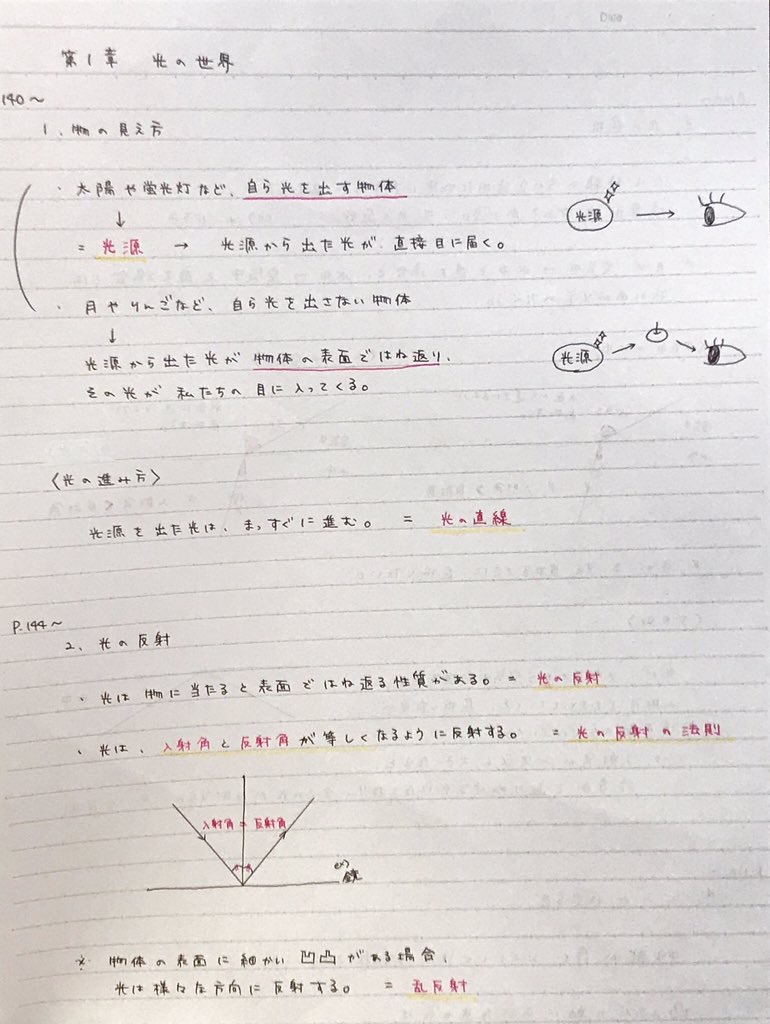 Date
第1章 光の世界
140〜
1、物の見え方
・太陽や蛍光灯など、自ら光を出す物体
↓
= 光源 → 光源から出た光が、直接目に届く。
光源 →
・月やりんごなど、自ら光を出さない物体
↓
光源から出た光が 物体の表面ではね返り、
その光が 私たちの目に入ってくる。
光源 → →
〈光の進み方〉
光源を出た光は、まっすぐに進む。 = 光の直線
P.144〜
2、光の反射
・光は物に当たると表面ではね返る性質がある。 = 光の反射
・光は、入射角と反射角が等しくなるように反射する。 = 光の反射の法則
入射角 = 反射角
ex)
鏡
※ 物体の表面に細かい凹凸がある場合、
光は様々な方向に反射する。 = 乱反射